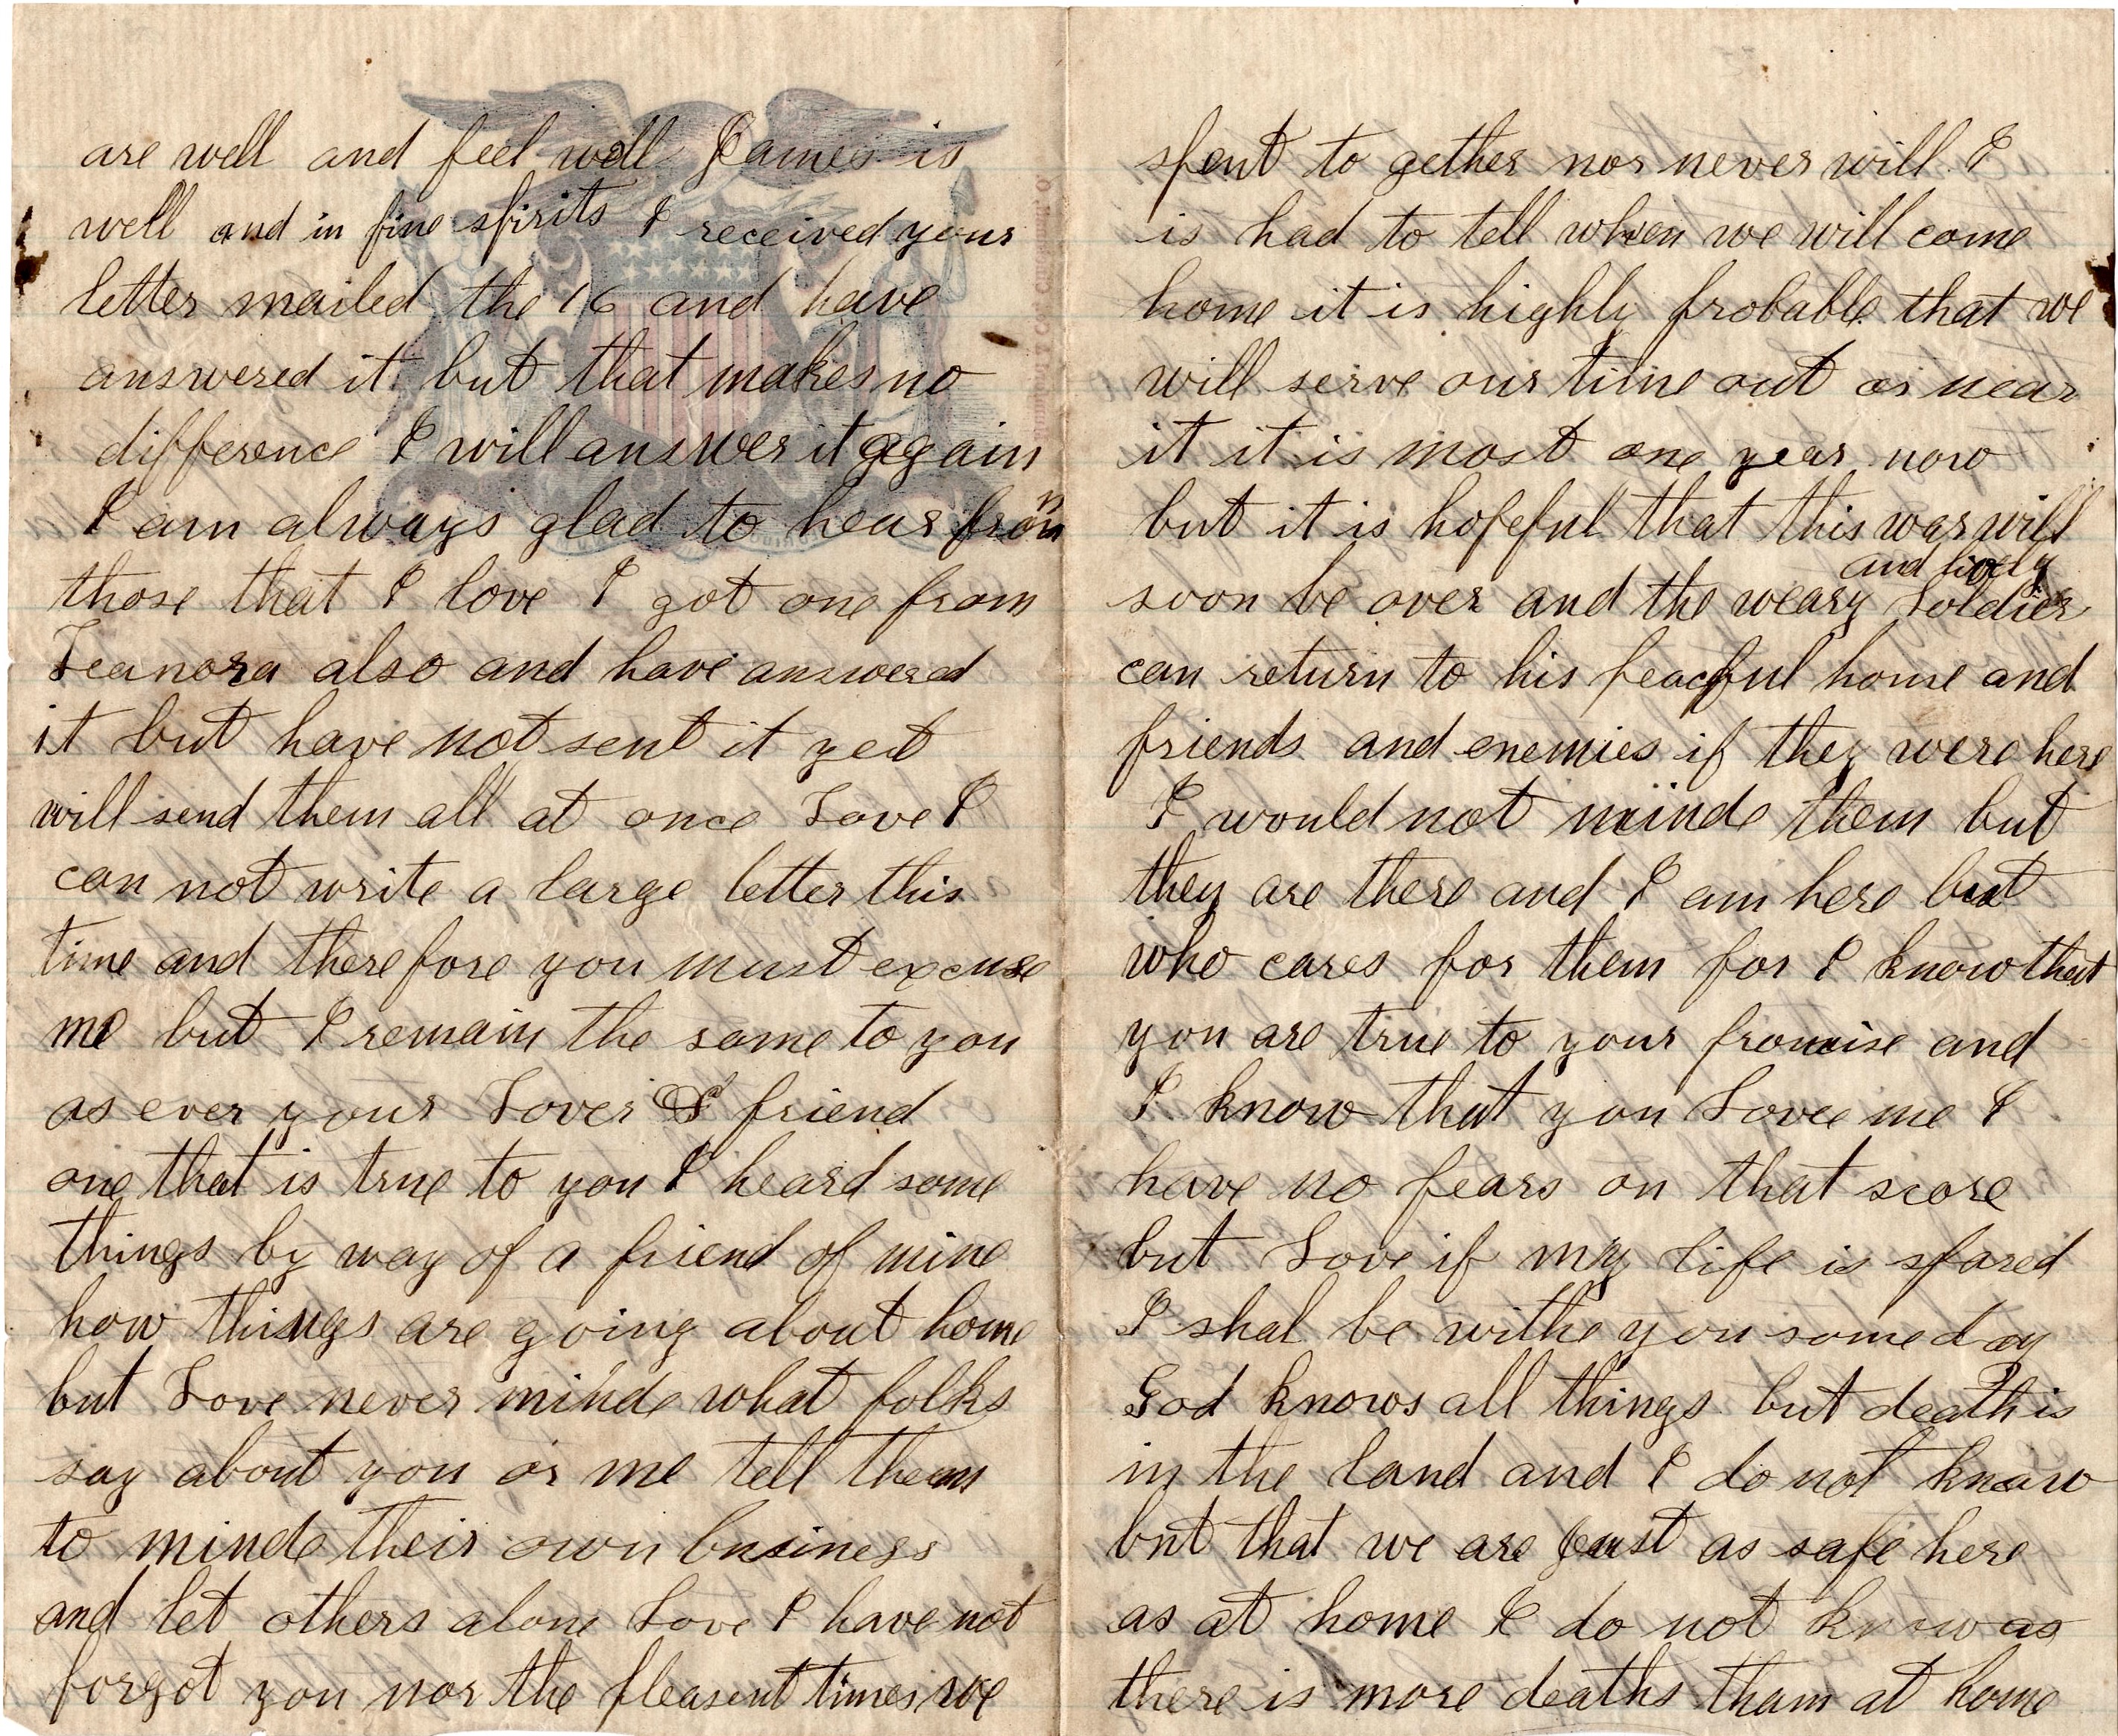 are well and feel well James is
well and in fine spirits I received your
letter mailed the 16 and have
answered it but that makes no
difference I will answer it again
I am always glad to hear from
those that I love I got one from
Leanora also and have answered
it but have not sent it yet
will send them all at once Love I
can not write a large letter this
time and therefore you must excuse
me but I remain the same to you
as ever your Lover & friend
one that is true to you I heard some
things by way of a friend of mine
how things are going about home
but Love never minde what folks
say about you or me tell them
to minde their own business
and let others alone Love I have not
forgot you nor the pleasent times we
spent to gether nor never will I
is had to tell when we will come
home it is highly probable that we
will serve our time out or near
it it is most one year now
but it is hopeful that this war will
and lively
soon be over and the weary Soldier
can return to his peacful home and
friends and enemies if they were here
I would not minde them but
they are there and I am here but
who cares for them for I know that
you are true to your promise and
I know that you Love me I
have no fears on that score
but Love if my life is spared
I shal be withe you some day
God knows all things but death is
in the land and I do not know
but that we are just as safe here
as at home I do not know as
there is more deaths tham at home